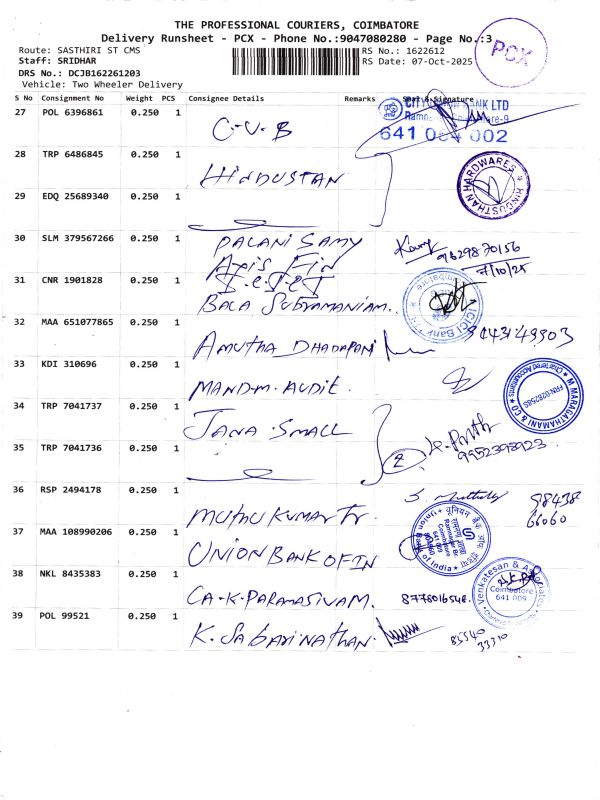 THE PROFESSIONAL COURIERS, COIMBATORE
Delivery Runsheet - PCX - Phone No.:9047080280 - Page No.:3
PCX
Route: SASTHIRI ST CMS
RS No.: 1622612
Staff: SRIDHAR
RS Date: 07-Oct-2025
DRS No.: DCJB162261203
Vehicle: Two Wheeler Delivery
S No Consignment No Weight PCS Consignee Details Remarks Seal & Signature
27 POL 6396861 0.250 1 C-V-B
BANK LTD
641 004 002
28 TRP 6486845 0.250 1 HINDUSTAN
HINDUSTHAN HARDWARES
29 EDQ 25689340 0.250 1
30 SLM 379567266 0.250 1 PALANI SAMY
9629870156
7/10/25
31 CNR 1901828 0.250 1 BALA SUBRAMANIAM.
ICICI Bank
Coimbatore
32 MAA 651077865 0.250 1 AMUTHA DHADAPANI
9043149503
33 KDI 310696 0.250 1 MAND-M. AUDIT.
M MARAGATHAMANI & CO
Chartered Accountants
34 TRP 7041737 0.250 1 JANA SMALL
2
9952398923
35 TRP 7041736 0.250 1
36 RSP 2494178 0.250 1 MUTHU KUMAR Tr.
98438
66060
37 MAA 108990206 0.250 1 UNION BANK OF IN
Union Bank of India
38 NKL 8435383 0.250 1 CA-K-PARAMASIVAM.
8778016548.
Venkatesan & Associates
Coimbatore
641 009
39 POL 99521 0.250 1 K. Sabarinathan.
85540
33310